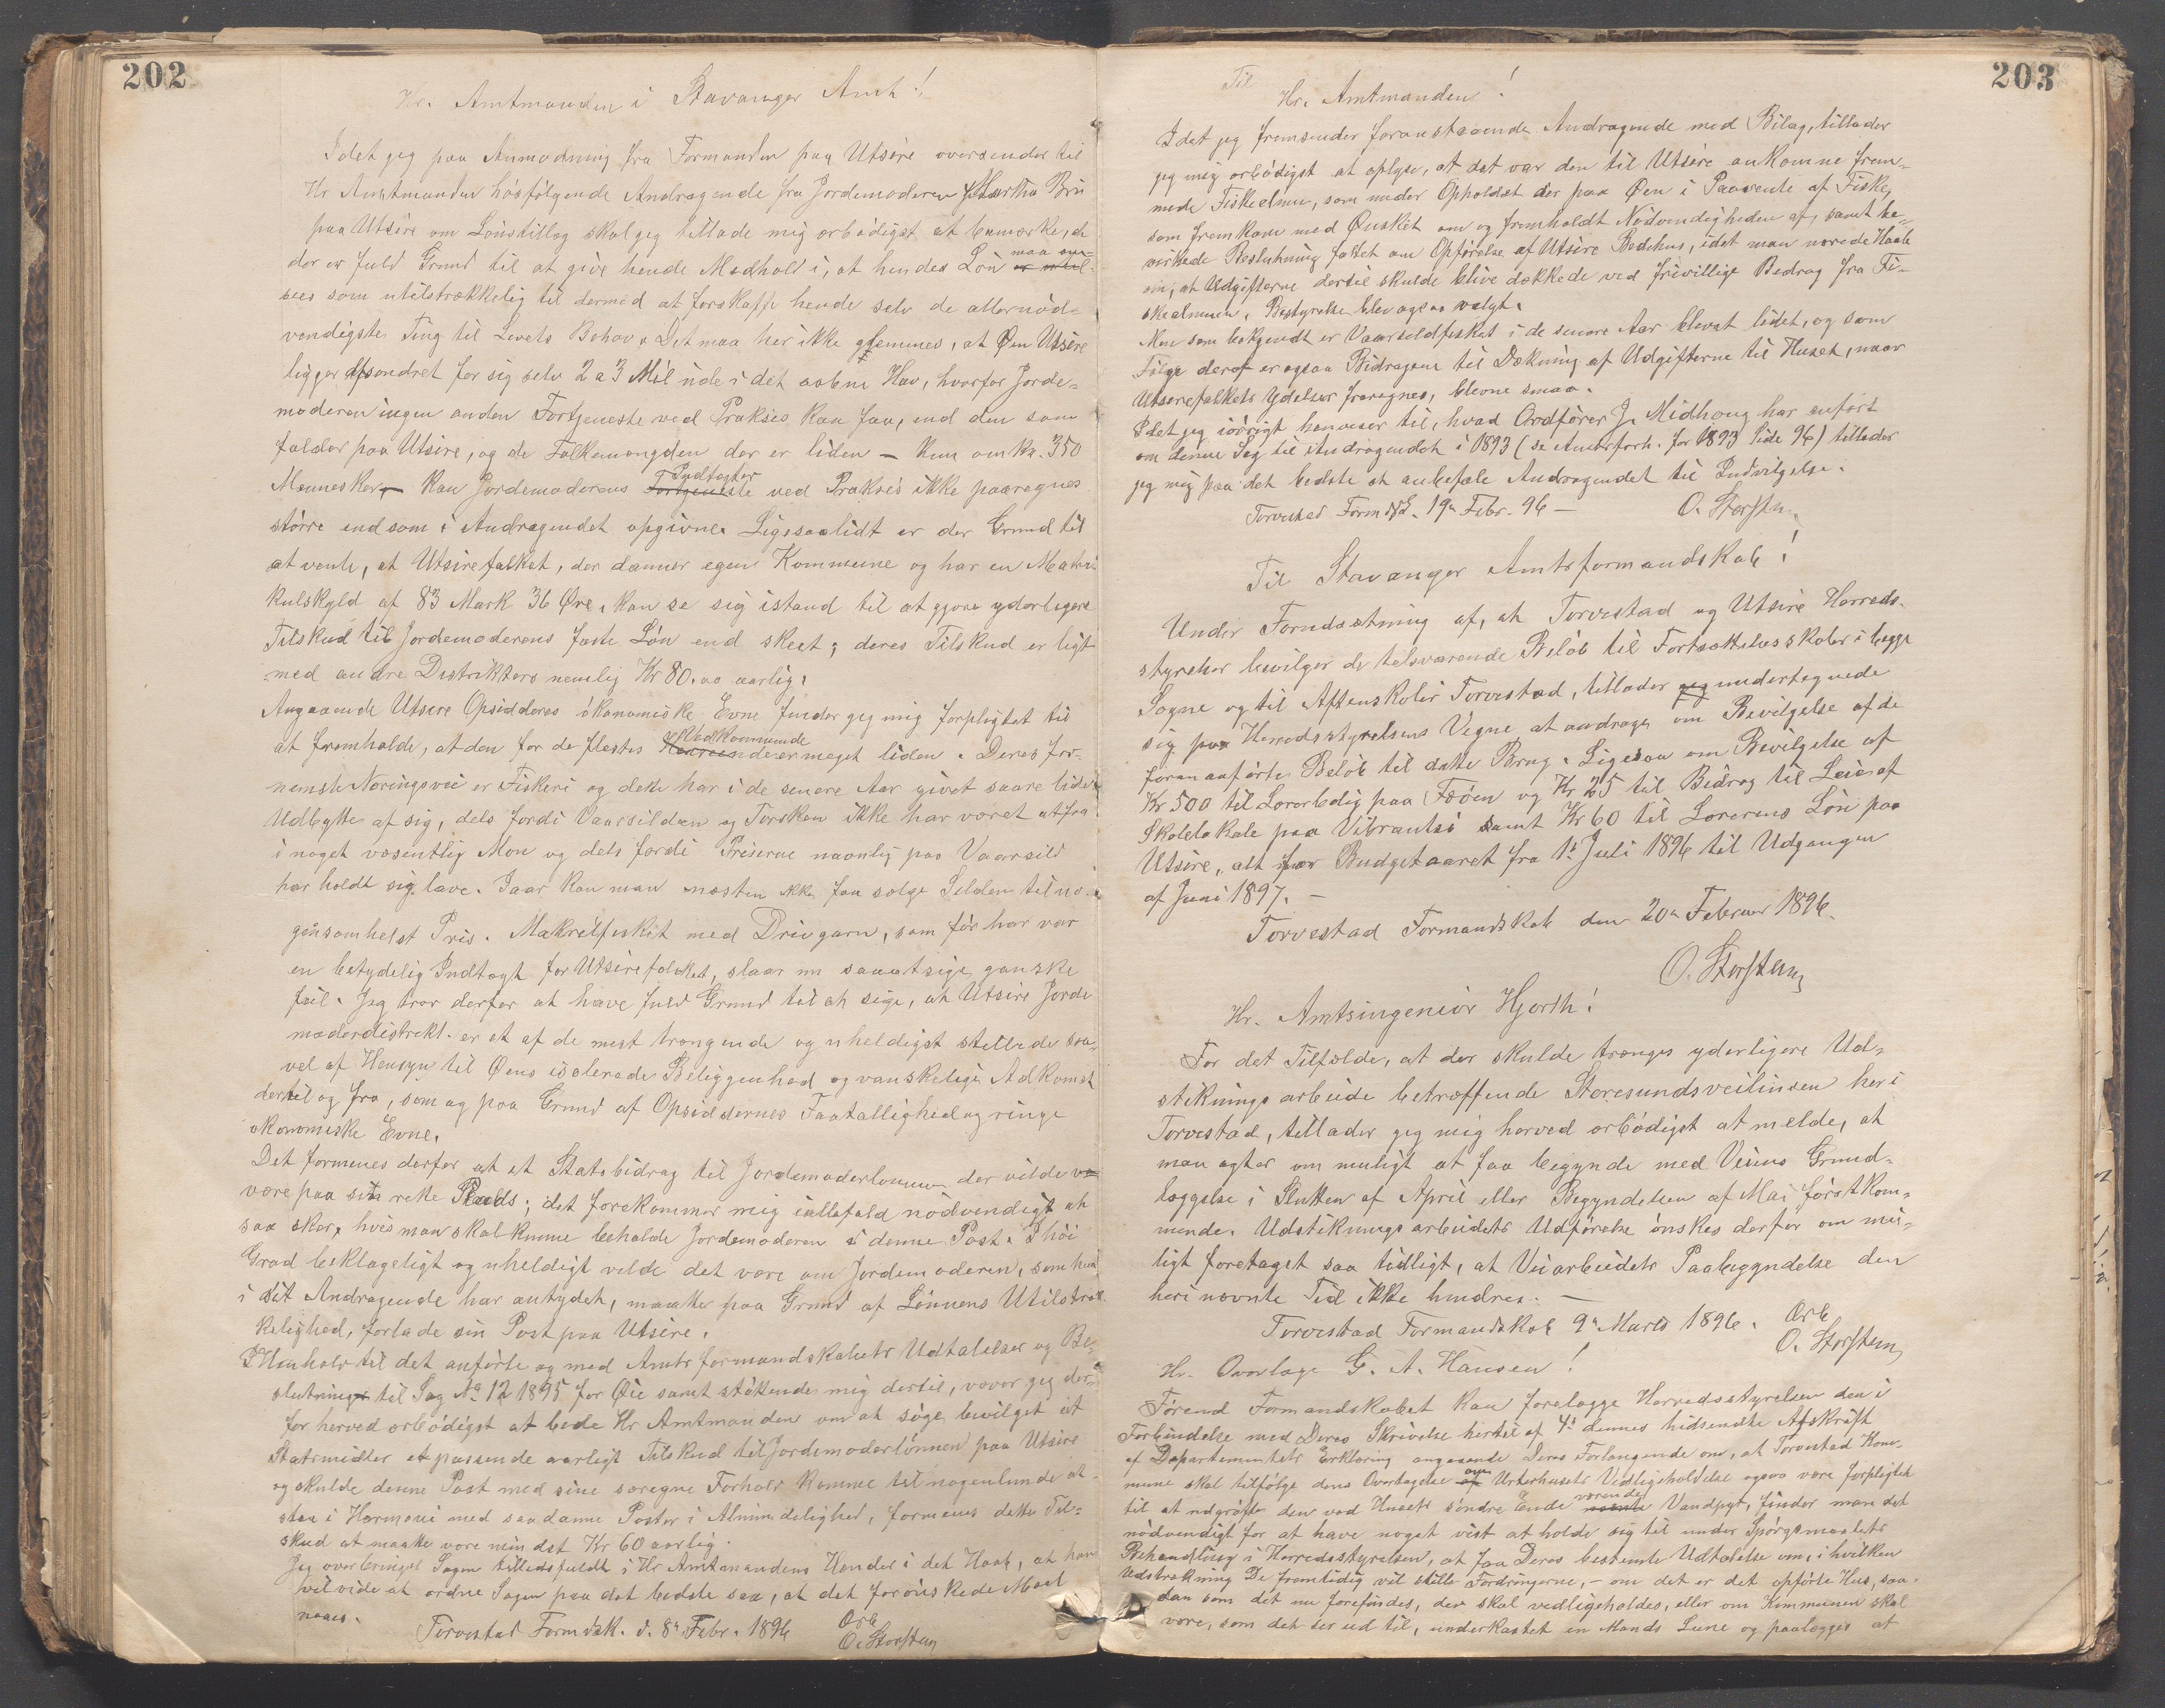 202
Hr. Amtmanden i Stavanger Amt!
Idet jeg paa Anmodning fra Formanden paa Utsire oversender til
Hr Amtmanden hosfølgende Andragende fra Jordemoderen Martha Brii
paa Utsire om Lønstillæg skal jeg tillade mig ærbødigst at bemærke, at
der er fuld Grund til at give hende Medhold i, at hendes Løn maa an-
sees som utilstrækkelig til dermed at forskaffe hende selv de allernød-
vendigste Ting til Livets Behov. Det maa her ikke glemmes, at Øen Utsire
ligger afsondret for sig selv 2 a 3 Mil ude i det aabne Hav, hvorfor Jorde-
moderen ingen anden Fortjeneste ved Praksis kan faa, end den som
falder paa Utsire, og da Folkemængden der er liden — kun omkr. 350
Mennesker, — kan Jordemoderens Indtægter ved Praksis ikke paaregnes
større end som i Andragendet opgivne. Ligesaalidt er der Grund til
at vente, at Utsirefolket, der danner egen Kommune og har en Matri-
kulskyld af 83 Mark 36 Øre, kan se sig istand til at gjøre yderligere
Tilskud til Jordemoderens faste Løn end skeet; deres Tilskud er ligt
med andre Distrikters nemlig Kr 80.00 aarlig.
Angaaende Utsire Opsidderes økonomiske Evne finder jeg mig forpligtet til
at fremholde, at den for de flestes Vedkommende er meget liden. Deres for-
nemste Næringsvei er Fiskeri og dette har i de senere Aar givet saare lidet
Udbytte af sig, dels fordi Vaarsilden og Torsken ikke har været at faa
i noget væsentlig Mon og dels fordi Priserne navnlig paa Vaarsild
har holdt sig lave. Iaar kan man næsten ikke faa sælge Silden til no-
gensomhelst Pris. Makrelfisket med Drivgarn, som før har var
en betydelig Indtægt for Utsirefolket, slaar nu saaatsige ganske
feil. Jeg tror derfor at have fuld Grund til at sige, at Utsire Jorde
moderdistrikt er et af de mest trængende og uheldigst stillede saa-
vel af Hensyn til Øens isolerede Beliggenhed og vanskelige Adkomst
dertil og fra, som og paa Grund af Opsiddernes Faatallighed og ringe
økonomiske Evne.
Det formenes derfor at et Statsbidrag til Jordemoderlønnen der vilde
være paa sin rette Plads; det forekommer mig iallefald nødvendigt at
saa sker, hvis man skal kunne beholde Jordemoderen i denne Post. I høi
Grad beklageligt og uheldigt vilde det være om Jordemoderen, som hun
i sit Andragende har antydet, maatte paa Grund af Lønnens Utilstræk
kelighed, forlade sin Post paa Utsire.
I Henhold til det anførte og med Amtsformandskabets Udtalelser og Be-
slutning til Sag No 12 1895 for Øie samt støttende mig dertil, vover jeg der-
for herved ærbødigst at bede Hr Amtmanden om at søge bevilget af
Statsmidler et passende aarligt Tilskud til Jordemoderlønnen paa Utsire
og skulde denne Post med sine særegne Forhold komme til nogenlunde at
staa i Harmoni med saadanne Poster i Almindelighed, formenes dette Til-
skud at maatte være mindst Kr 60 aarlig.
Jeg overbringer Sagen tillidsfuldt i Hr Amtmandens Hænder i det Haab, at han
vil vide at ordne Sagen paa det bedste saa, at det forønskede Maal
naaes.
Torvestad Formdsk. d. 8de Febr. 1896
Ærb
O. Storstein
203
Til
Hr. Amtmanden!
Idet jeg fremsender foranstaaende Andragende med Bilag, tillader
jeg mig ærbødigst at oplyse, at det var den til Utsire ankomne frem-
mede Fiskealmue, som under Opholdet der paa Øen i Paavente af Fiske,
som fremkom med Ønsket om og fremholdt Nødvendigheden af, samt be-
virkede Beslutning fattet om Opførelse af Utsire Bedehus, idet man nærede Haab
om, at Udgifterne dertil skulde blive dækkede ved frivillige Bidrag fra Fi-
skealmuen. Bestyrelse blev ogsaa valgt.
Men som bekjendt er Vaarsildfisket i de senere Aar blevet lidet, og som
Følge deraf er ogsaa Bidragene til Dækning af Udgifterne til Huset, naar
Utsirefolkets Ydelser fraregnes, blevne smaa.
Idet jeg iøvrigt henviser til, hvad Ordfører J. Midhoug har anført
om denne Sag til Andragendet i 1893 (se Amtsforh. for 1893 Side 96) tillader
jeg mig paa det bedste at anbefale Andragendet til Indvilgelse.
Torvestad Formdsk. 19de Febr. 96 —
O. Storstein
Til Stavanger Amtsformandskab!
Under Forudsætning af, at Torvestad og Utsire Herreds-
styrelser bevilger de tilsvarende Beløb til Fortsættelsesskoler i begge
Sogne og til Aftenskoler Torvestad, tillader undertegnede
sig paa Herredsstyrelsens Vegne at andrage om Bevilgelse af de
foranførte Beløb til dette Brug. Ligesaa om Bevilgelse af
Kr 500 til Lærerbolig paa Feøen og Kr 25 til Bidrag til Leie af
Skolelokale paa Vibrantsø samt Kr 60 til Lærerens Løn paa
Utsire, alt for Budgetaaret fra 1ste Juli 1896 til Udgangen
af Juni 1897. —
Torvestad Formandskab den 20de Februar 1896.
O. Storstein
Hr. Amtsingeniør Hjorth!
For det Tilfælde, at der skulde trænges yderligere Ud-
stiknings arbeide betræffende Storesundsveilinien her i
Torvestad, tillader jeg mig herved ærbødigst at melde, at
man agter om muligt at faa begynde med Veiens Grund-
læggelse i Slutten af April eller Begyndelsen af Mai førstkom-
mende. Udstikningsarbeidets Udførelse ønskes derfor om mu-
ligt foretaget saa tidligt, at Veiarbeidets Paabegyndelse den
heri nævnte Tid ikke hindres. —
Torvestad Formandskab 9de Marts 1896.
Ærb
O. Storstein
Hr. Overlæge G. A. Hansen!
Førend Formandskabet kan forelægge Herredsstyrelsen den i
Forbindelse med Deres Skrivelse hertil af 4de dennes hidsendte Afskrift
af Departementets Erklæring angaaende Deres Forlangende om, at Torvestad Kom-
mune skal tilfølge dens Overtagelse Urterhusets Vedligeholdelse ogsaa være forpligtet
til at udgrøfte den ved Husets søndre Ende værende Vandpyt, finder man det
nødvendigt for at have noget vist at holde sig til under Spørgsmaalets
Behandling i Herredsstyrelsen, at faa Deres bestemte Udtalelse om, i hvilken
Udstrækning De fremtidig vil stille Fordringerne, — om det er det opførte Hus, saa-
dan som det nu forefindes, der skal vedligeholdes, eller om Kommunen skal
være, som det ser ud til, underkastet en Mands Lune og paalægges at